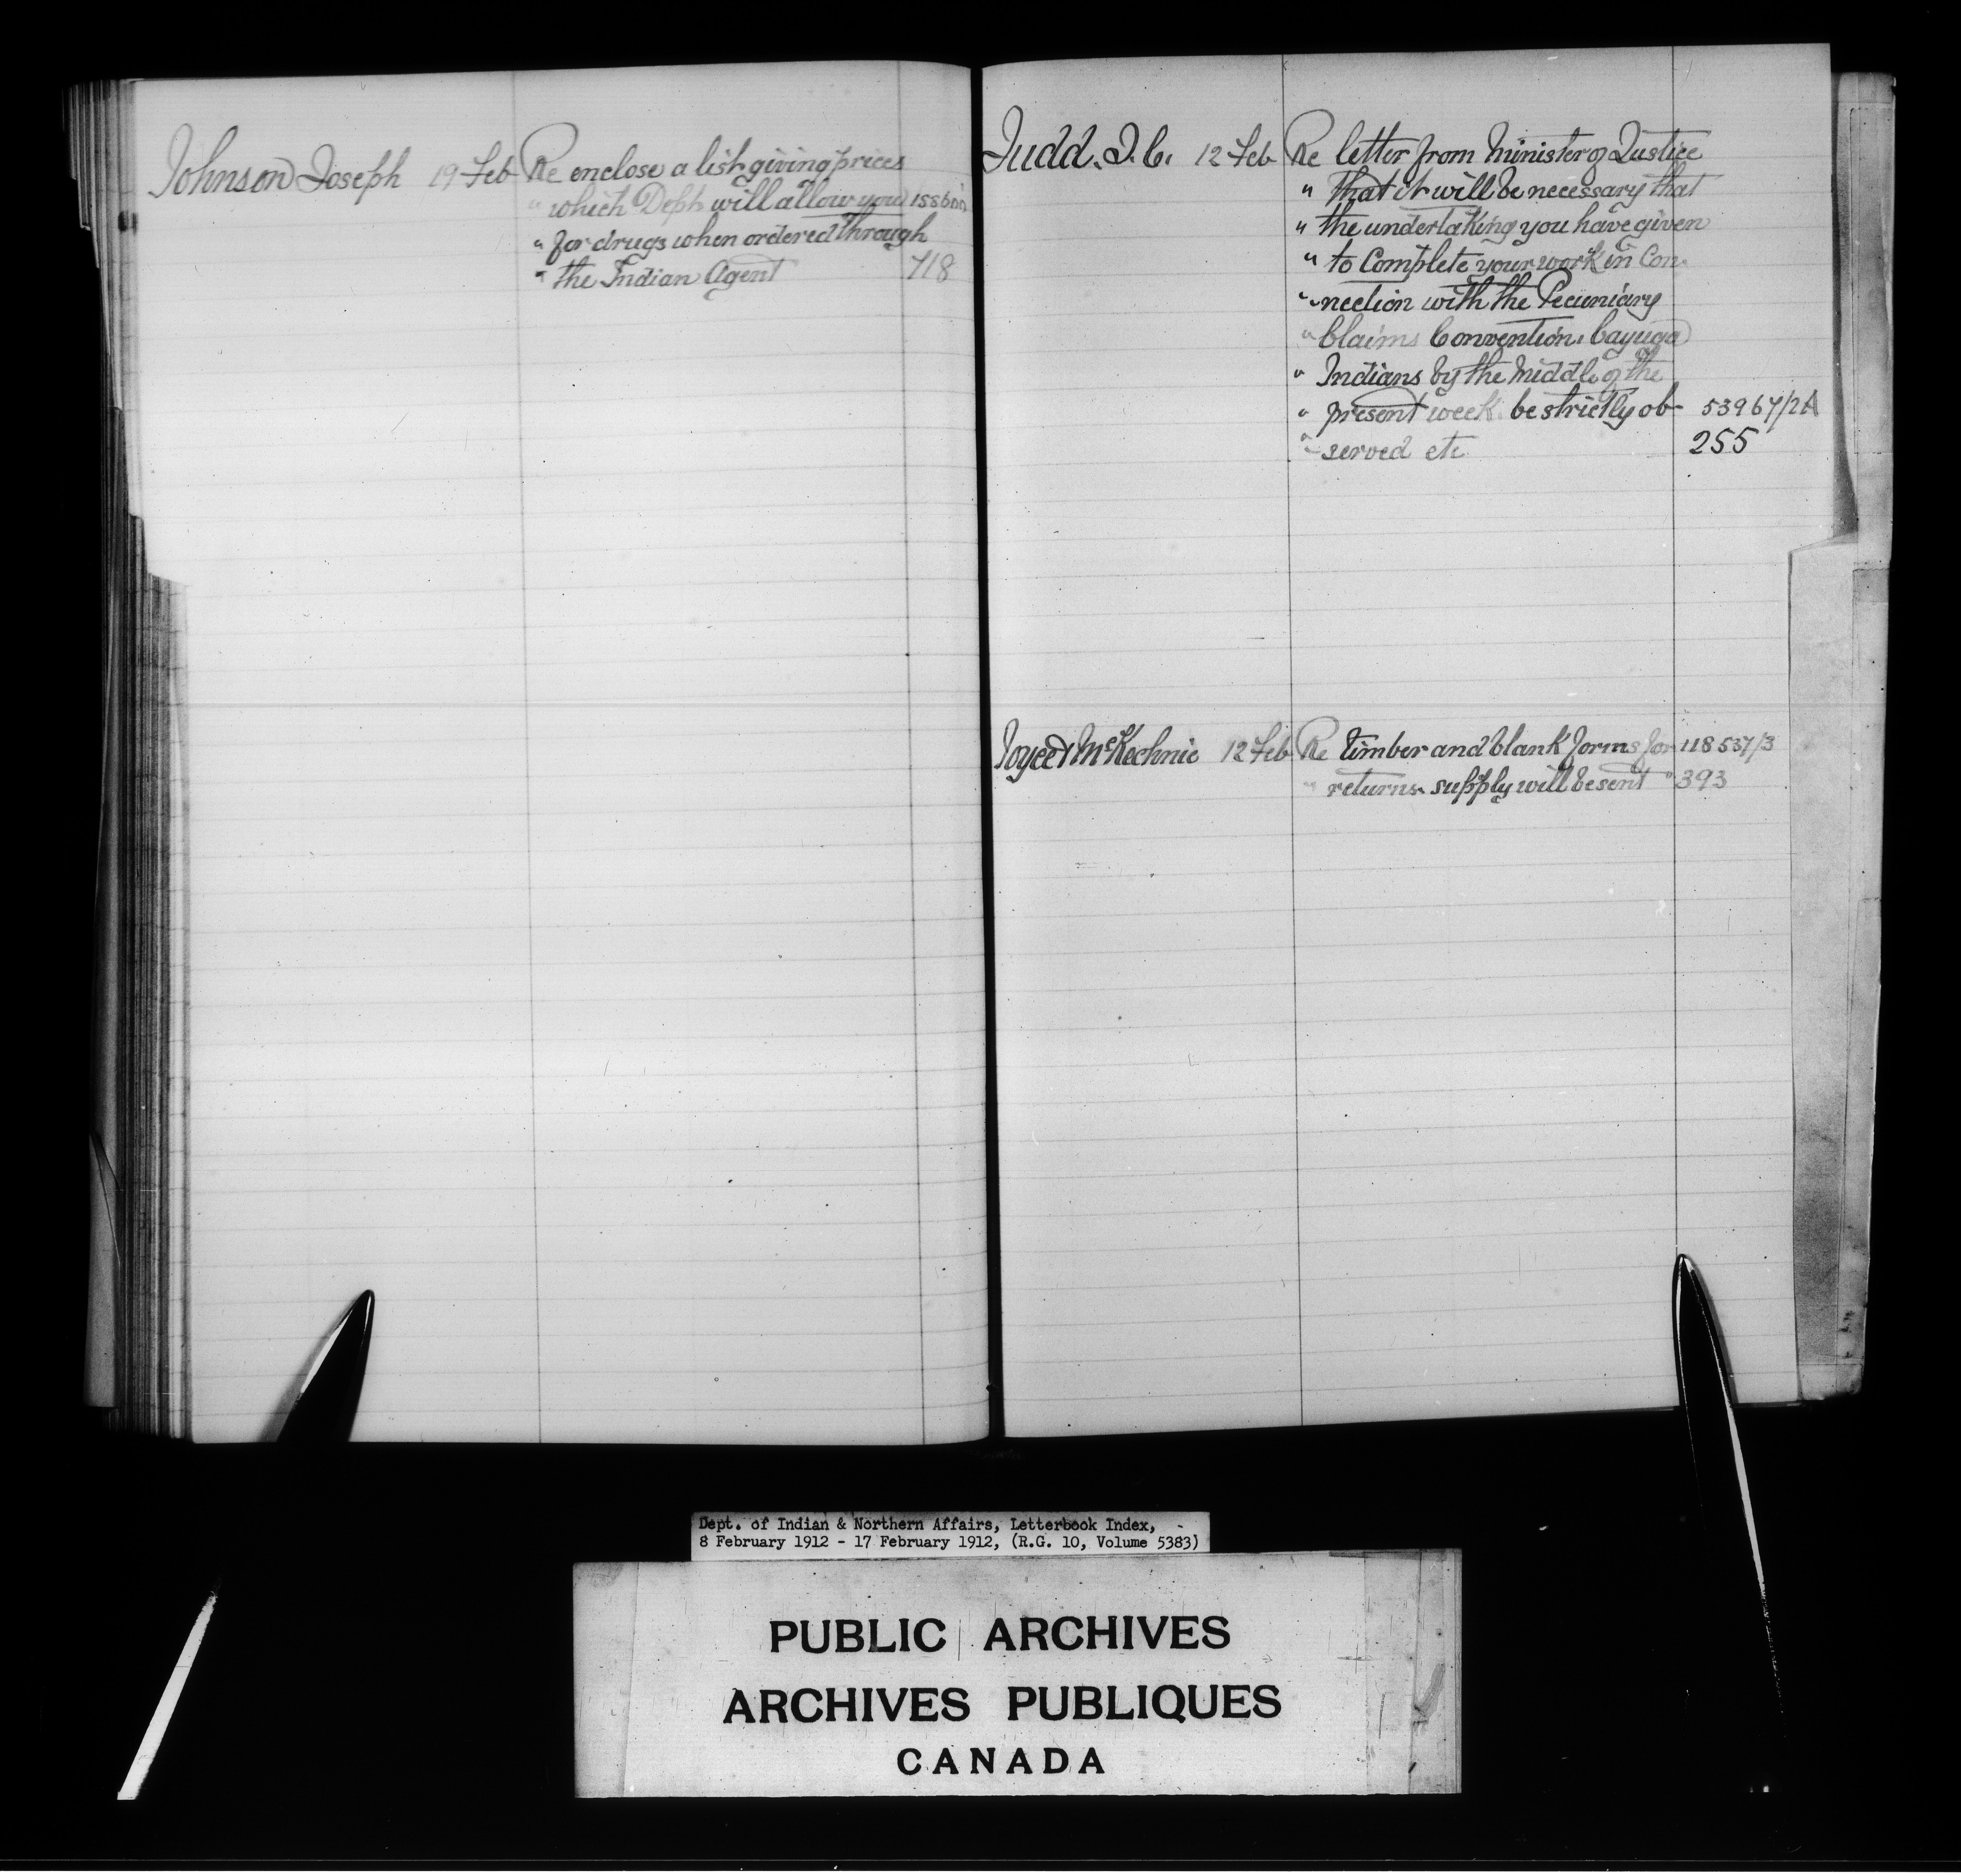 Johnson Joseph 19 Feb Re enclose a list giving prices
" which Dept will allow you
" for drugs when ordered through
" the Indian Agent 718
Judd. J. C. 12 Feb Re letter from Minister of Justice
" that it will be necessary that
" the undertaking you have given
" to Complete your work in Con-
" nection with the Pecuniary
" Claims Convention, Cayuga
" Indians by the Middle of the
" present week. be strictly ob- 53967/2A
" served etc 255
Joyce & McKechnie 12 Feb Re timber and blank forms for 118537/3
" returns. supply will be sent " 393
Dept. of Indian & Northern Affairs, Letterbook Index,
8 February 1912 - 17 February 1912, (R.G. 10, Volume 5383)
PUBLIC ARCHIVES
ARCHIVES PUBLIQUES
CANADA